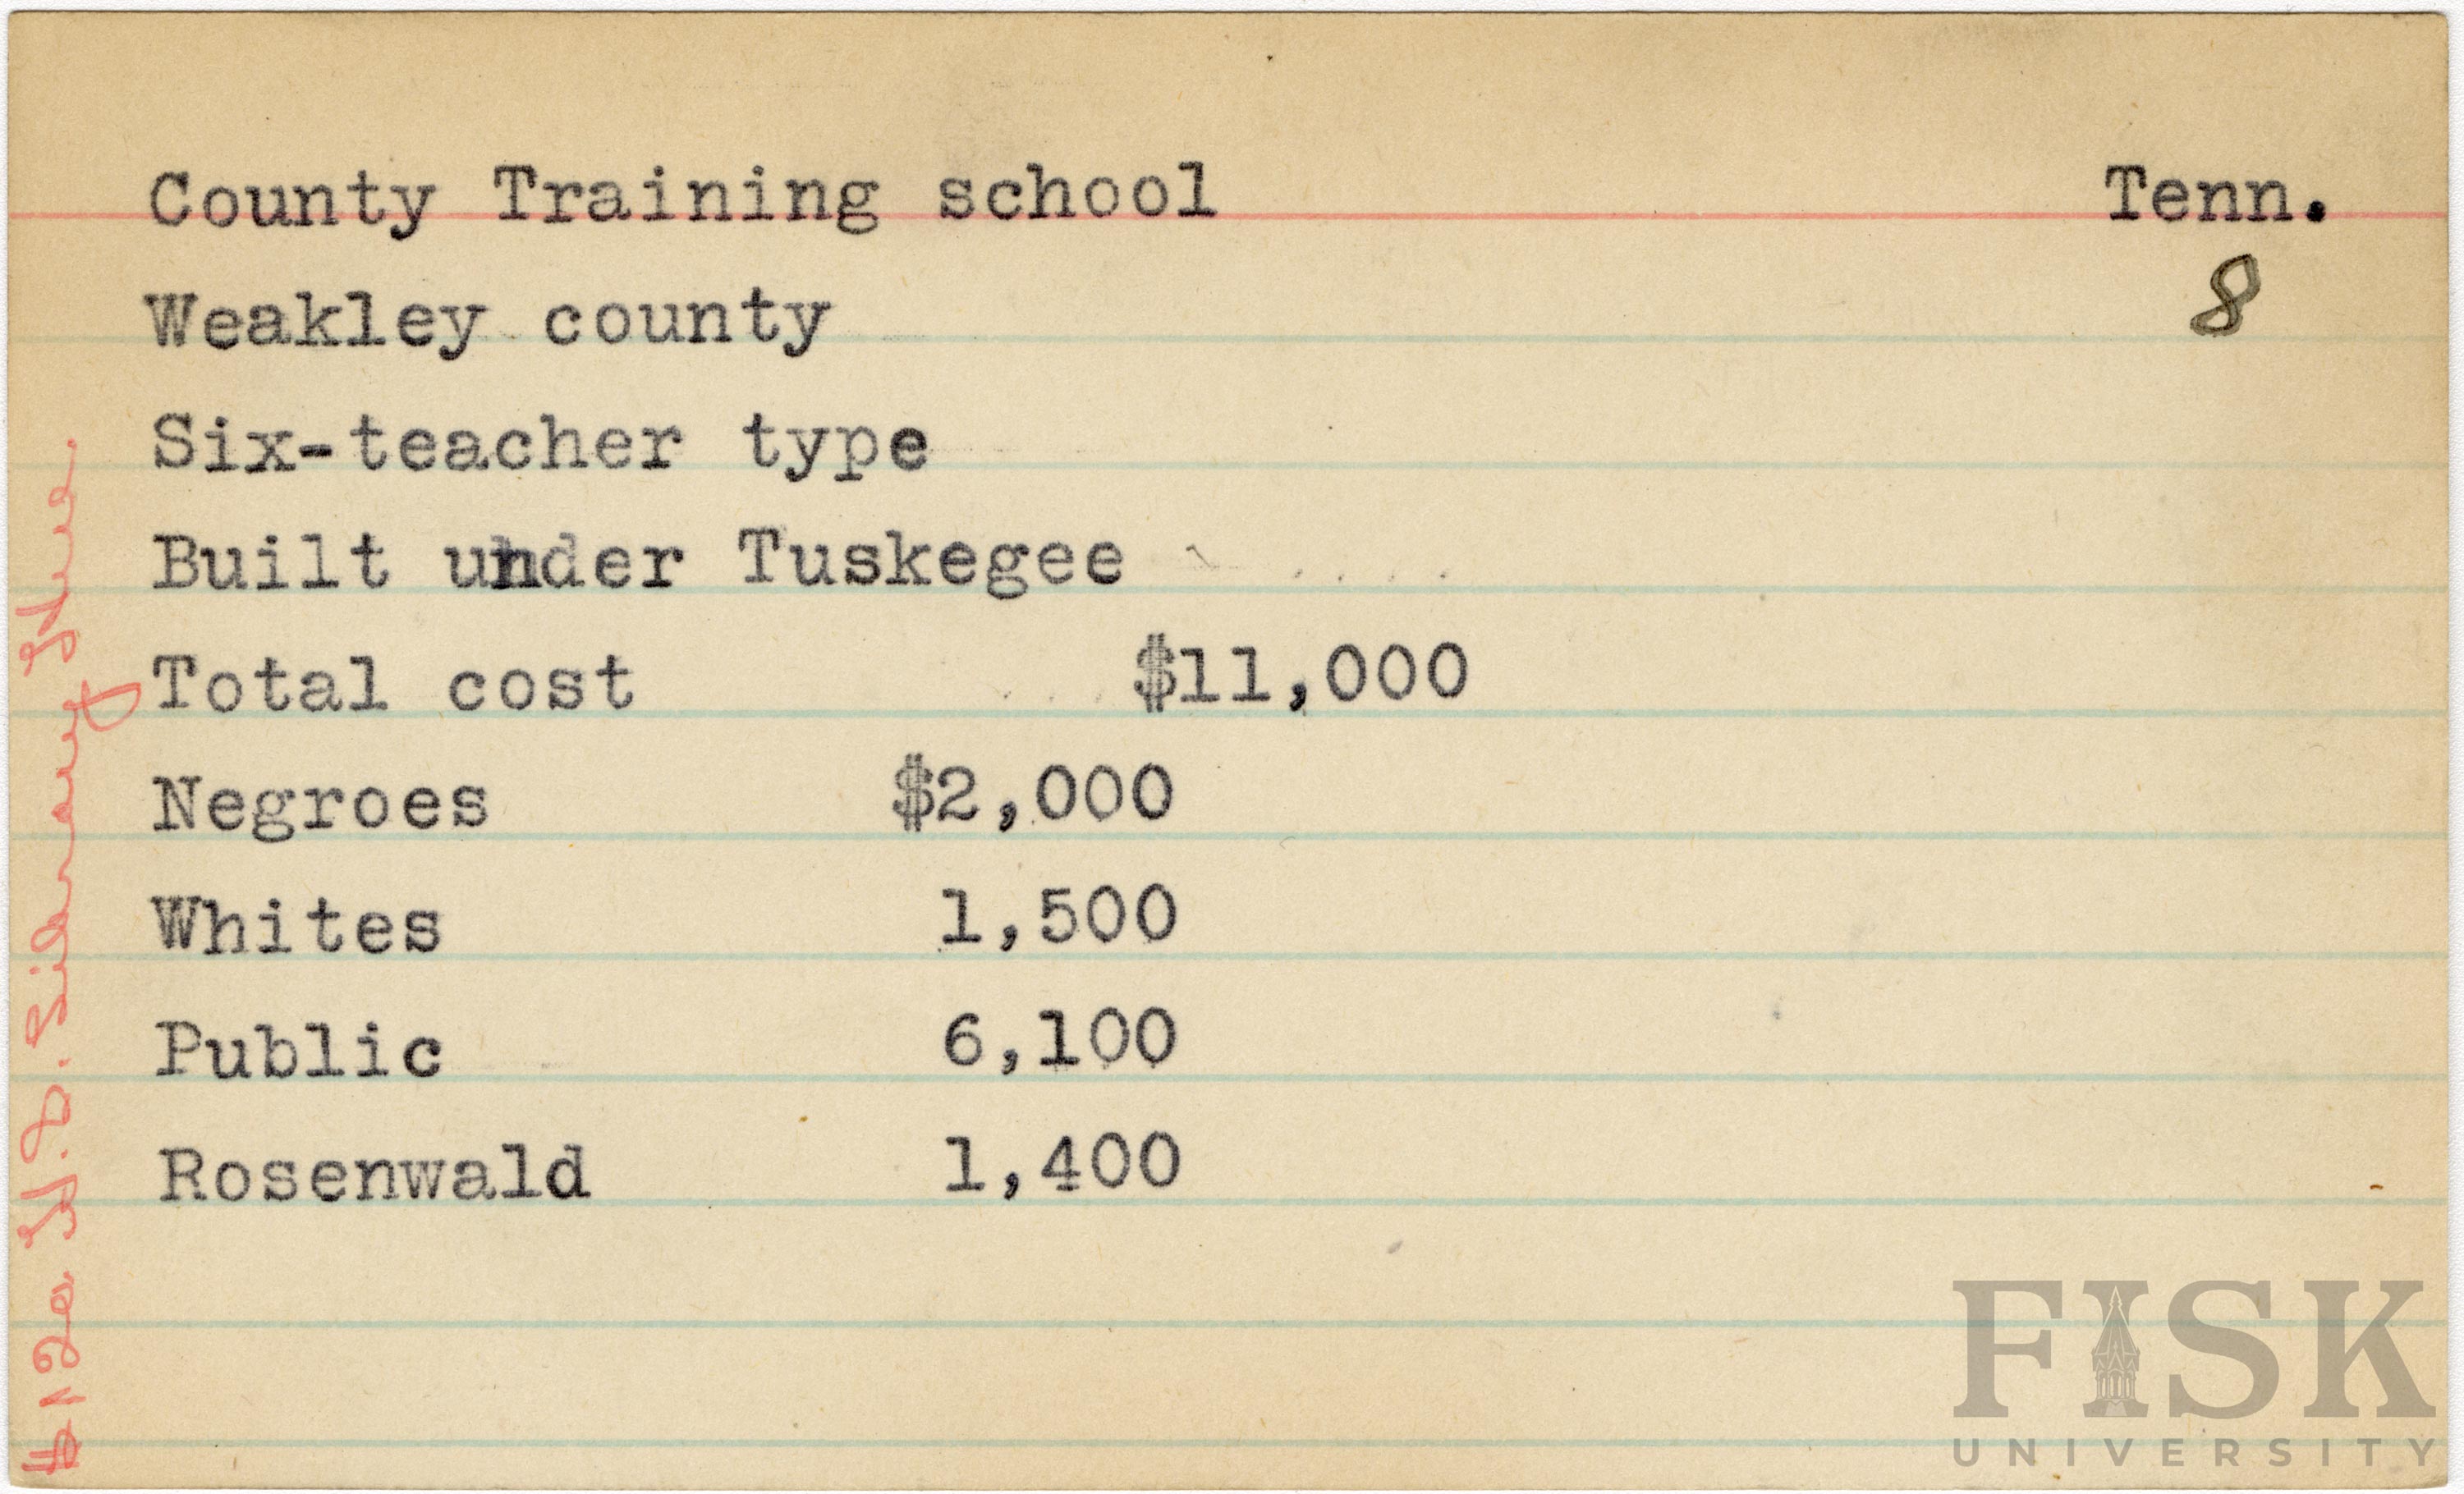 County Training school Tenn.
8
Weakley county
Six-teacher type
Built under Tuskegee
Total cost $11,000
Negroes $2,000
Whites 1,500
Public 6,100
Rosenwald 1,400
FISK
UNIVERSITY